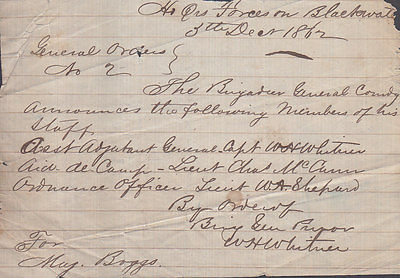 Hd Qrs Forces on Blackwate
5th Dect 1862
General Orders }
No 2 }
The Brigadier General Comdg
announces the following Members of his
Staff
Assit Adjutant General - Capt W H Whitner
Aid-de-Camp - Lieut Chas McCann
Ordnance Officer Lieut W H Shepard
By Order of
Brig Gen Pryor
W H Whitner
For
Maj. Boggs.